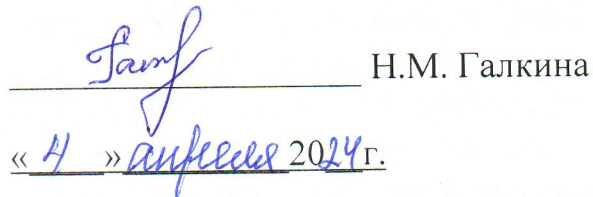 Н.М. Галкина
« 4 » апреля 2024 г.